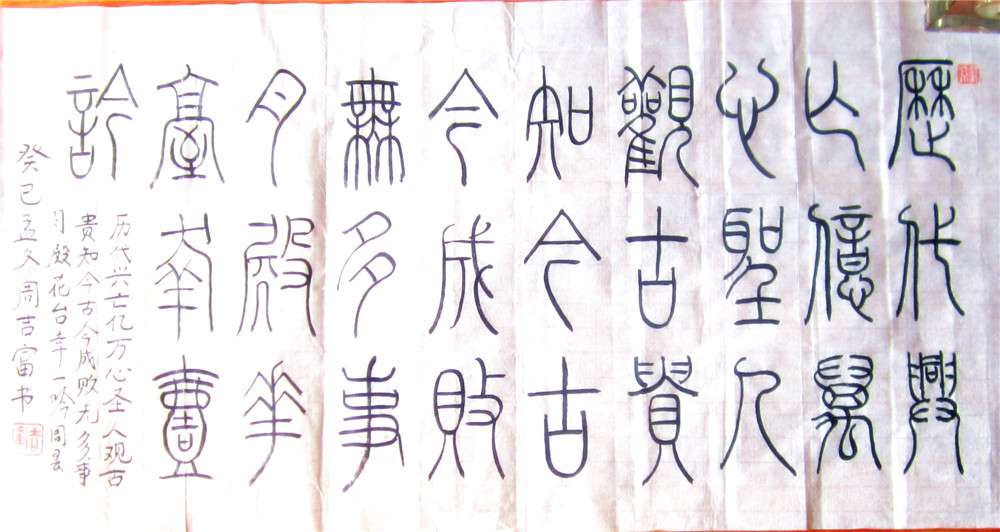 歷代興
亡億萬
心聖人
觀古貴
知今古
今成敗
無多事
月殿華
臺幸壹
訡
历代兴亡亿万心圣人观古
贵知今古今成败无多事
月殿花台幸一吟 周昙
癸巳孟冬周吉富书